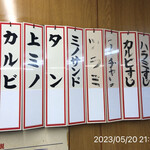 カルビ
上ミノ
タン
ミノサンド
カルビすし
ハラミすし
2023/05/20 21: